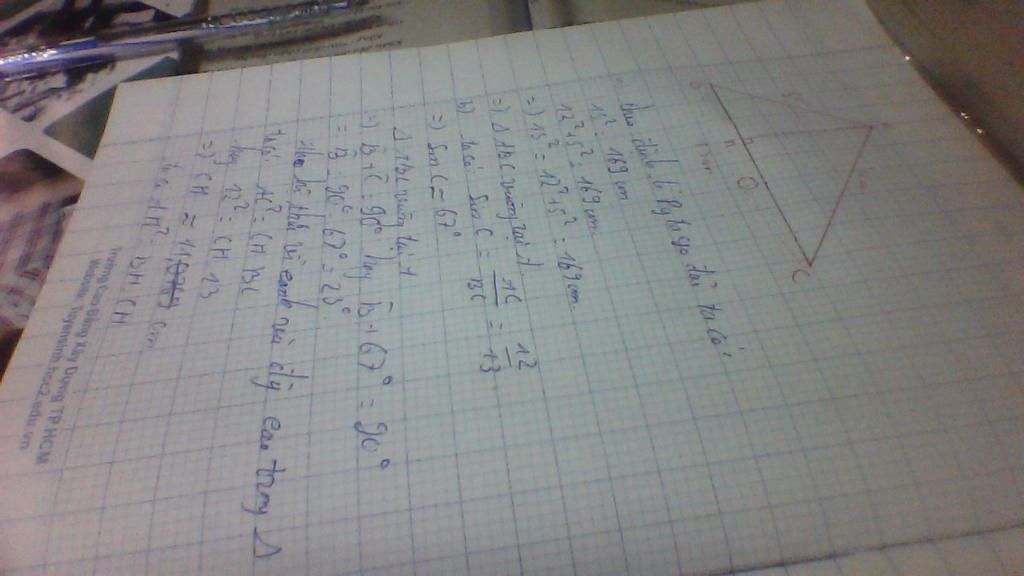 B
5
A
12cm
H
13cm
C
Theo định lí Pytago đảo ta có:
13² = 169 cm
12² + 5² = 169 cm
=) 13² = 12² + 5² = 169 cm
=) Δ ABC vuông tại A
b) ta có Sin C = AC / BC = 12 / 13
=) Sin C = 67°
Δ ABC vuông tại A
=) B + C = 90° hay B + 67° = 90°
= B = 90° 67° = 23°
cạnh và đg cao trong Δ
ta có AC² = CH BC
hay 12² = CH 13
=) CH ≈ 11, cm
ta có AH² = BH CH
Trường Cao Đẳng Xây Dựng TP.HCM
Website: tuyensinh.hcc2.edu.vn